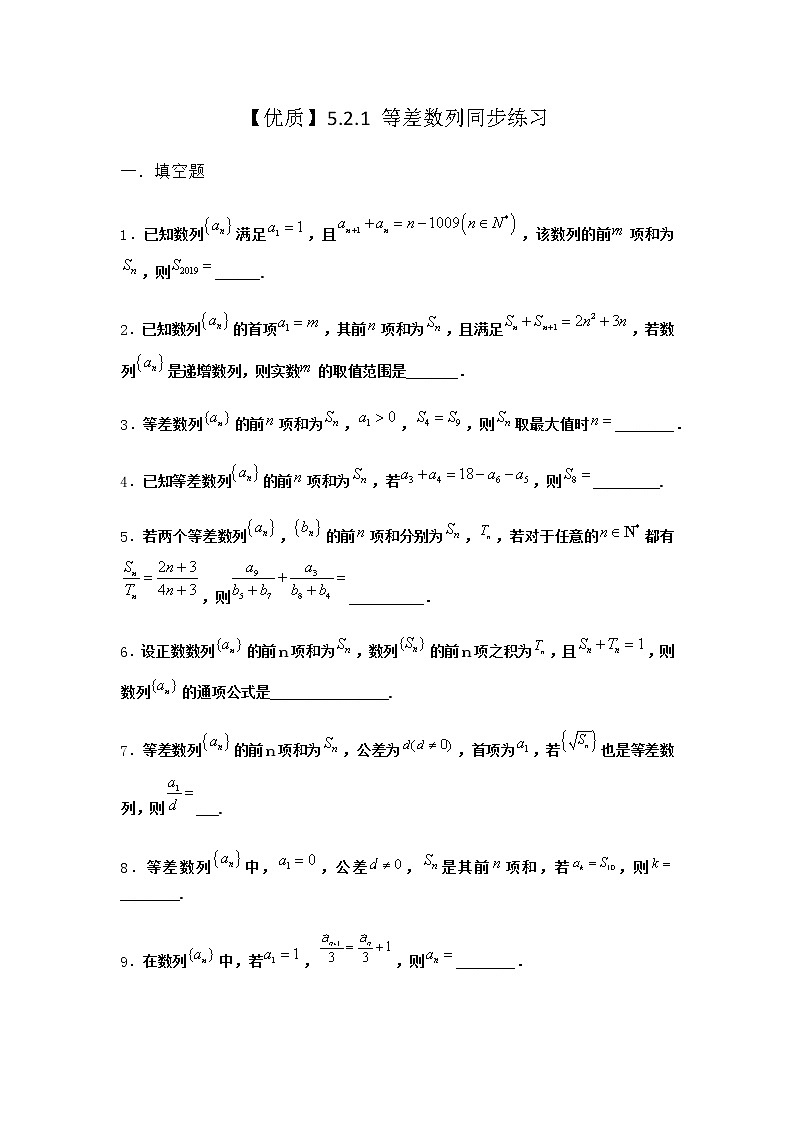 【优质】5.2.1 等差数列同步练习
一．填空题
1．已知数列{aₙ}满足a₁ = 1，且aₙ₊₁ + aₙ = n − 1009(n ∈ N*)，该数列的前m 项和为
Sₙ，则S₂₀₁₉ = ______.
2．已知数列{aₙ}的首项a₁ = m，其前n项和为Sₙ，且满足Sₙ + Sₙ₊₁ = 2n² + 3n，若数
列{aₙ}是递增数列，则实数m 的取值范围是_______．
3．等差数列{aₙ}的前n项和为Sₙ，a₁ > 0，S₄ = S₉，则Sₙ取最大值时n = ________．
4．已知等差数列{aₙ}的前n项和为Sₙ，若a₃ + a₄ = 18 − a₆ − a₅，则S₈ = _________.
5．若两个等差数列{aₙ}，{bₙ}的前n项和分别为Sₙ，Tₙ，若对于任意的n ∈ N*都有
Sₙ/Tₙ = (2n + 3)/(4n + 3)，则a₉/(b₅ + b₇) + a₃/(b₈ + b₄) = __________．
6．设正数数列{aₙ}的前n项和为Sₙ，数列{Sₙ}的前n项之积为Tₙ，且Sₙ + Tₙ = 1，则
数列{aₙ}的通项公式是________________.
7．等差数列{aₙ}的前n项和为Sₙ，公差为d(d ≠ 0)，首项为a₁，若{√Sₙ}也是等差数
列,则a₁/d = ___.
8．等差数列{aₙ}中，a₁ = 0，公差d ≠ 0，Sₙ是其前n项和，若aₖ = S₁₀，则k =
________.
9．在数列{aₙ}中，若a₁ = 1，aₙ₊₁/3 = aₙ/3 + 1，则aₙ = ________．